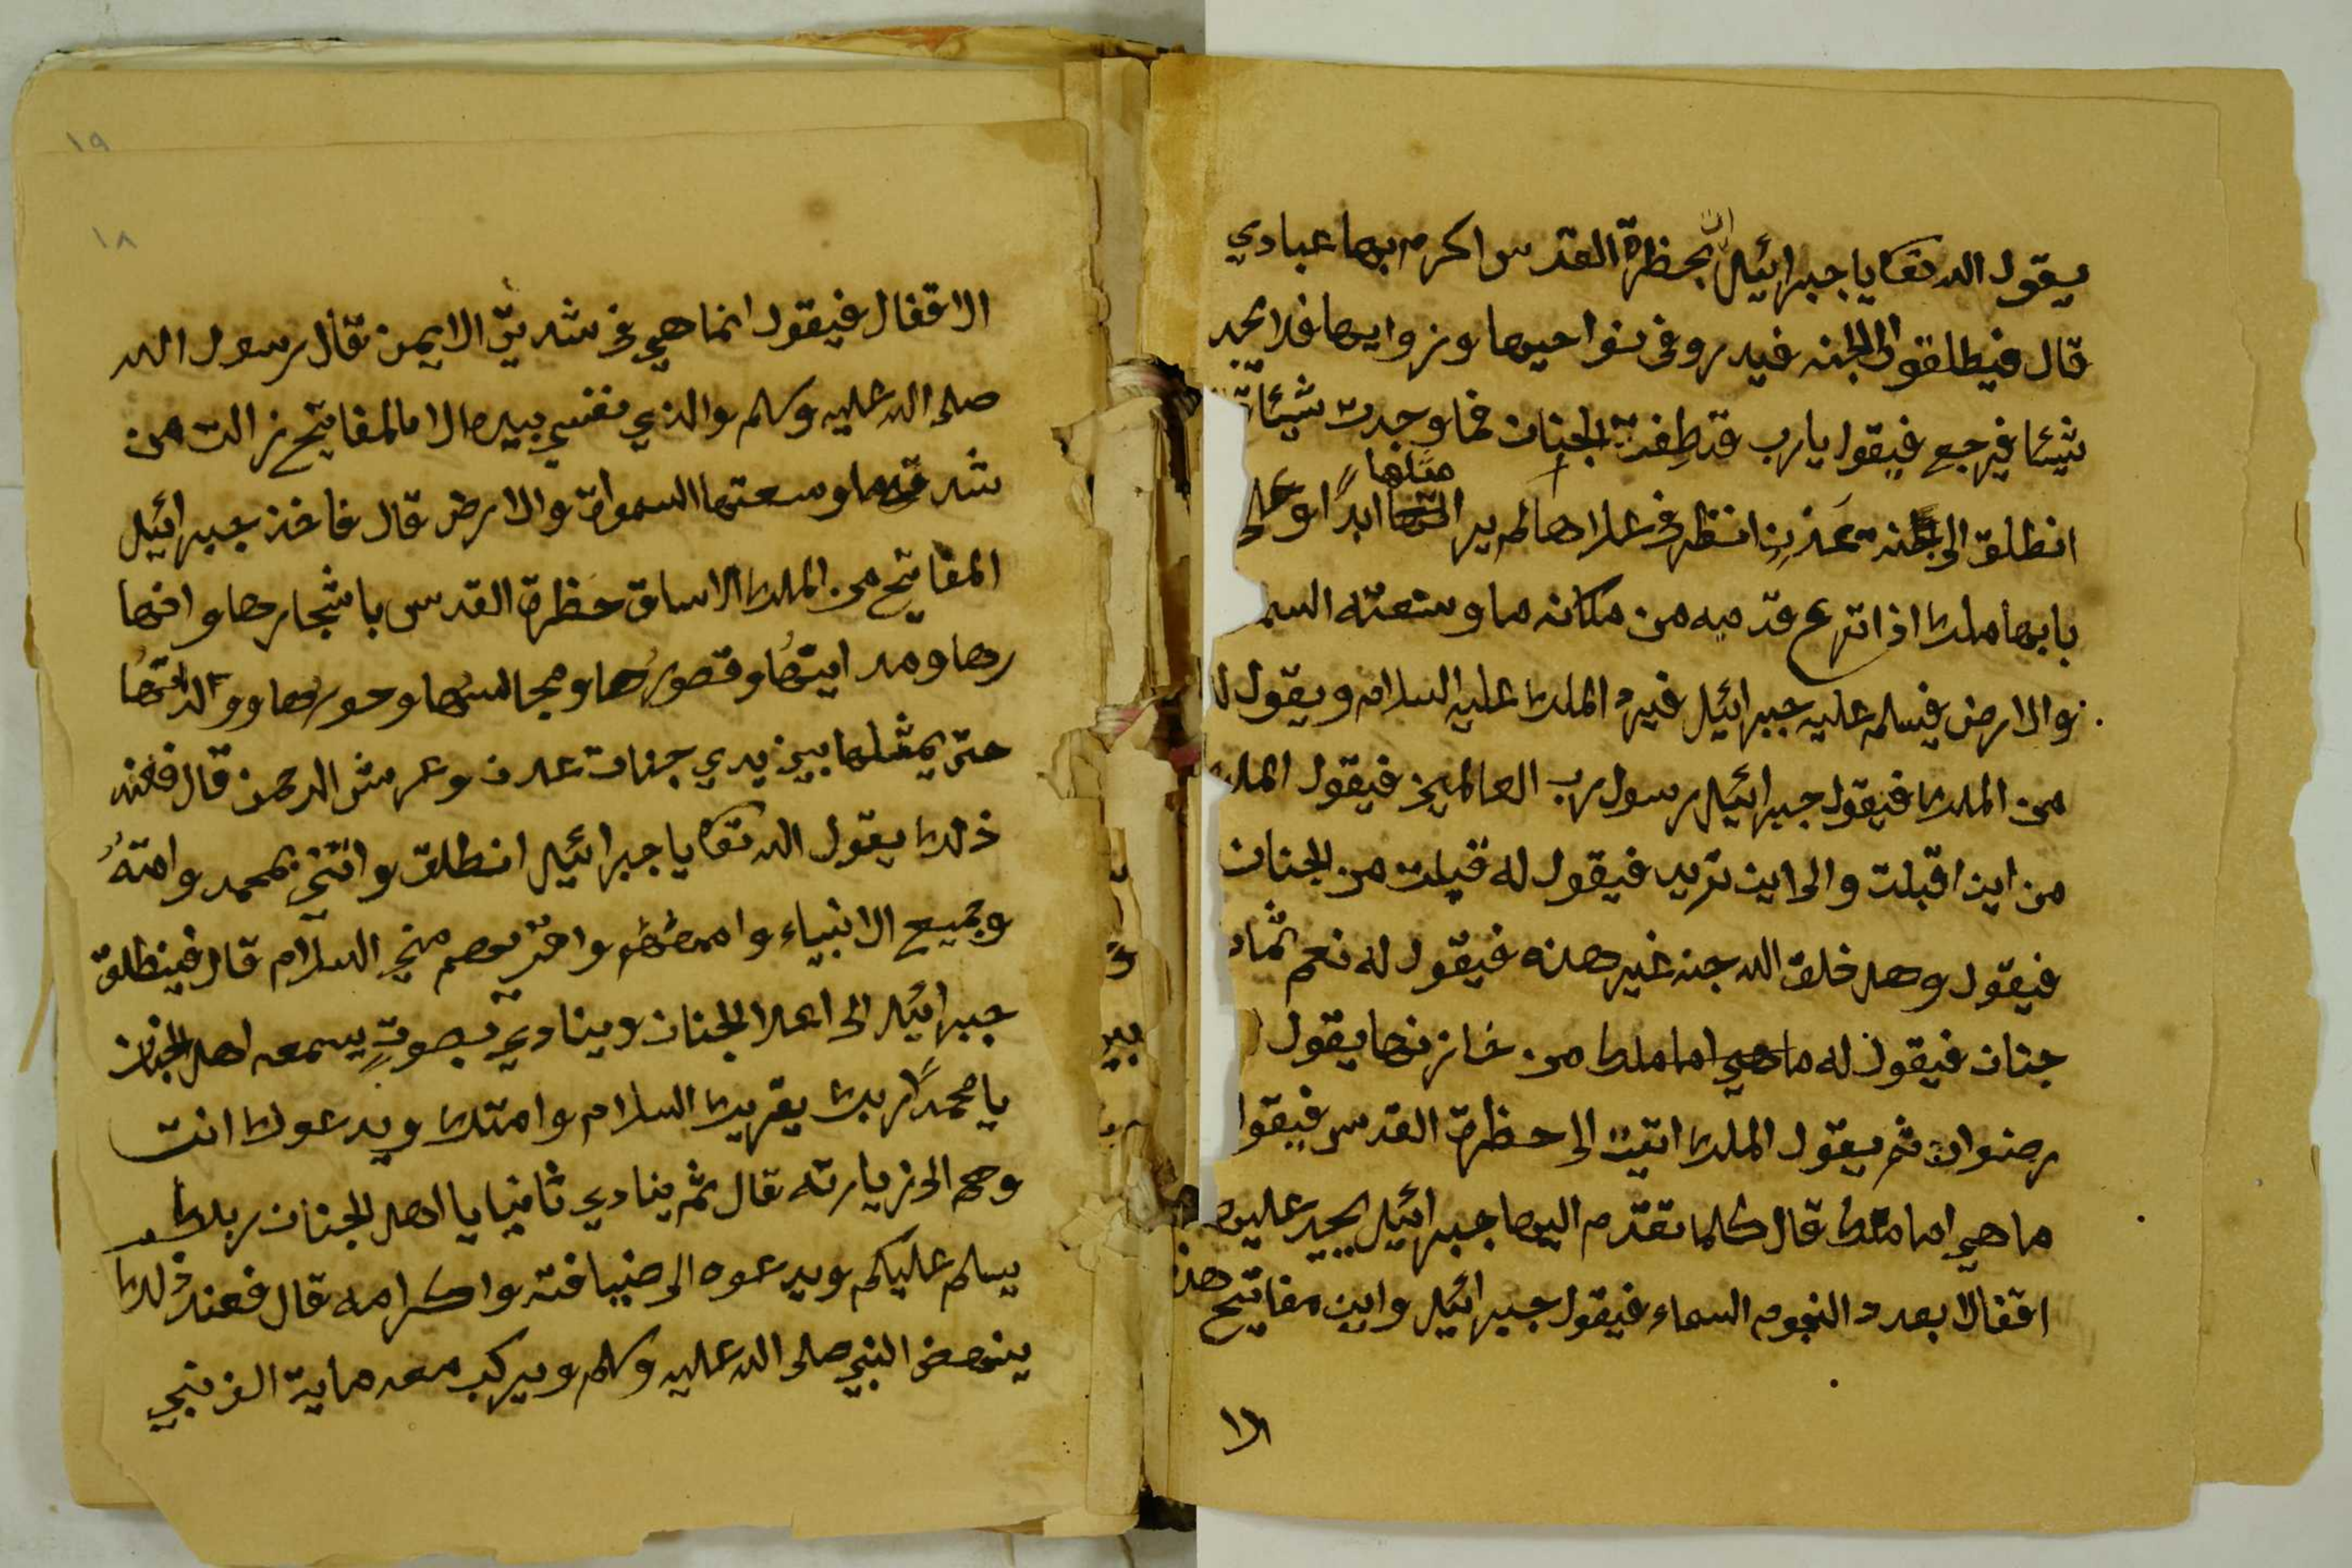 يقول الله تعا يا جبرائيل ائت بحظرة القدس اكرم بها عبادي
قال فيطلقوا الى الجنه فيدروفى نواحيها وزوايها فلا يجد
شيئا فيرجع فيقول يارب قد طفت الجنان فما وجدت شيئا
انطلق الى جنة عدن انظر في علاها لم ير مثلها ابدًا وعلى
بابها ملك اذا نزع قدميه من مكانه ما وسعته السم
والارض فيسلم عليه جبرائيل فيرد الملك عليه السلام ويقول
من الملك فيقول جبرائيل رسول رب العالمين فيقول الملك
من اين اقبلت والى اين تريد فيقول له قبلت من الجنان
فيقول وهل خلق الله جنه غير هذه فيقول له نعم ثمان
جنان فيقول له ما هي امامك من خازنها يقول
رضوان ثم يقول الملك اتيت الى حظرة القدس فيقول
ما هي امامك قال كلما تقدم اليها جبرائيل يجد عليها
اقفالا بعدد النجوم السماء فيقول جبرائيل واين مفاتيح هذه
الا
١٩
١٨
الاقفال فيقول انما هي في شدقي الايمن فقال رسول الله
صلى الله عليه وسلم والذي نفسي بيده الا ما لمفاتيح زالت من
شدقه ما وسعتها السموات والارض قال فاخذ جبرائيل
المفاتيح من الملك الاساق حظرة القدس باشجارها وانها
رها ومداينها وقصورها ومجالسها وحورها وولدانها
حتى يمثلها بين يدي جنات عدن وعرش الرحمن قال فعند
ذلك يقول الله تعا يا جبرائيل انطلق وائتني بمحمد وامته
وجميع الانبياء واممهم واقريهم مني السلام قال فينطلق
جبرائيل الى اعلا الجنان وينادي بصوت يسمعه اهل الجنان
يا محمدًا ربك يقريك السلام وامتك ويدعوك انت
وهم الى زيارته قال ثم ينادي ثانيا يا اهل الجنان ربكم
يسلم عليكم ويدعوه الى ضيافته واكرامه قال فعند ذلك
ينهض النبي صلى الله عليه وسلم ويركب معه ماية الف نبي